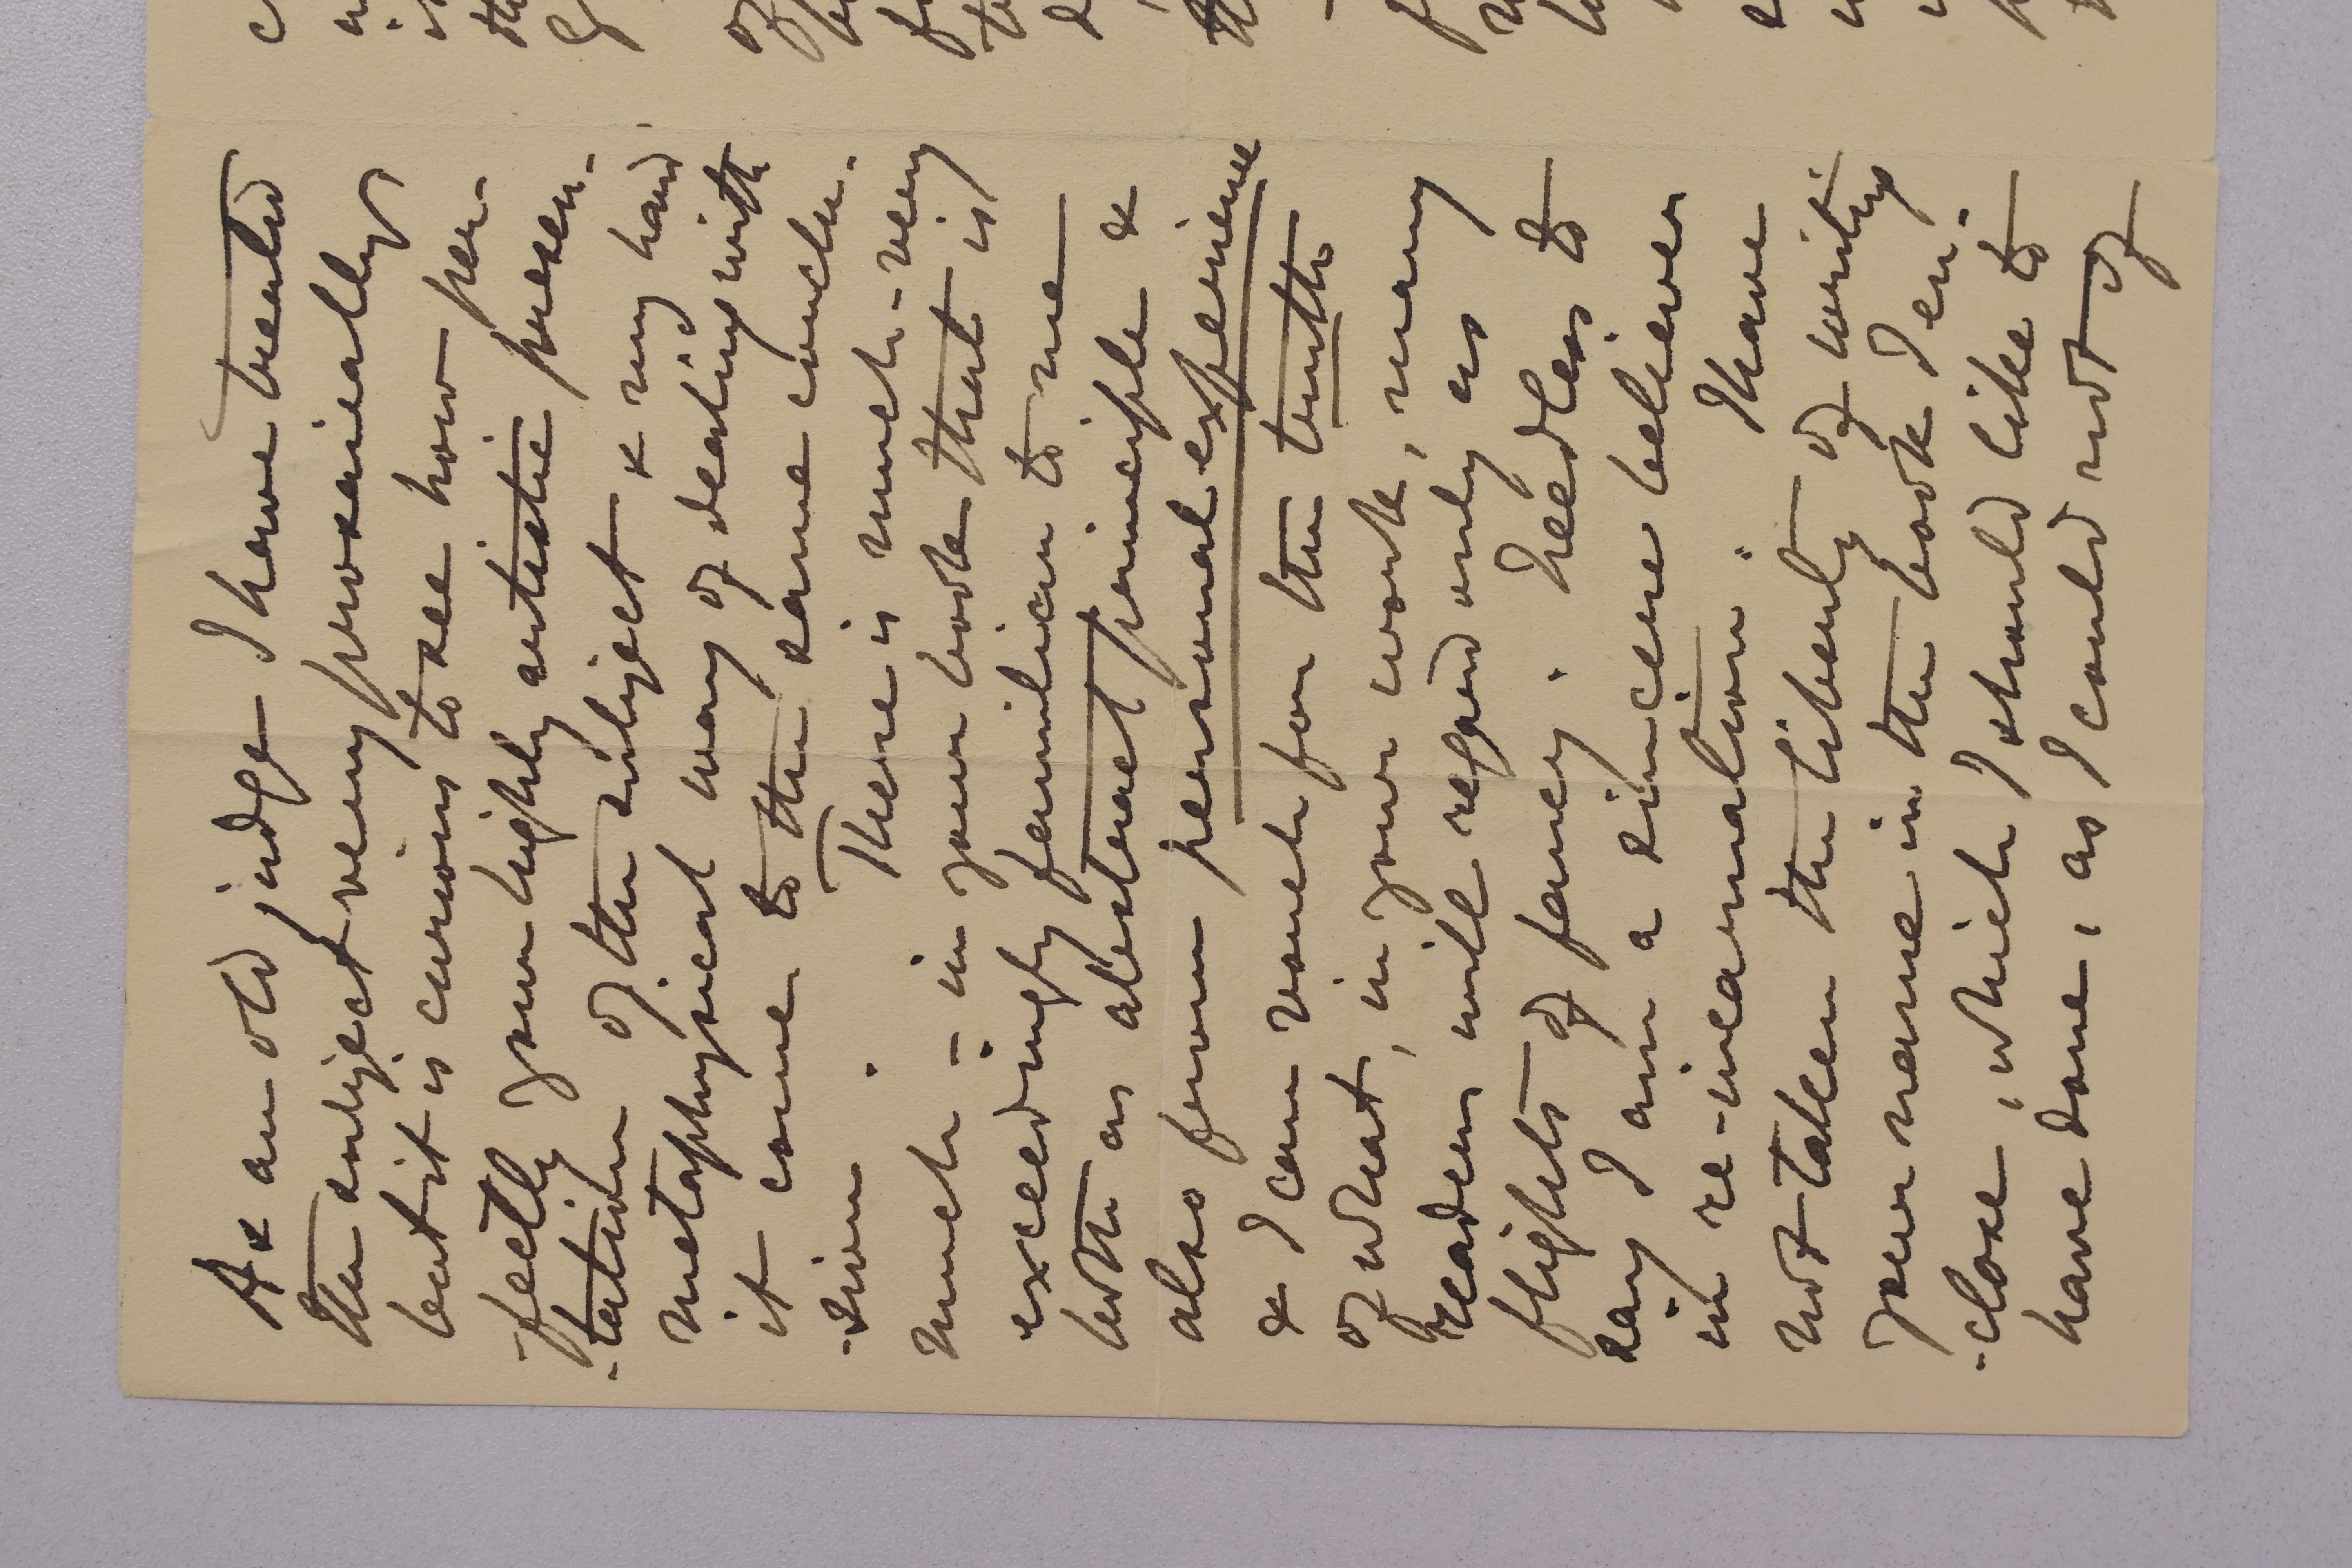 As an old judge I have treated
the subject very prosaically
but it is curious to see how per-
-fectly your highly artistic presen-
-tation of the subject & my hard
metaphysical way of dealing with
it come to the same conclu-
-sion. There is much - very
much - in your book that is
exceedingly familiar to me
both as abstract principle &
also from personal experience
& I can vouch for the truth
of what, in your work, many
readers will regard only as
flights of fancy. Needless to
say I am a sincere believer
in re-incarnation. I have
not taken the liberty of writing
your name in the book I en-
-close, which I should like to
have done, as I could not of